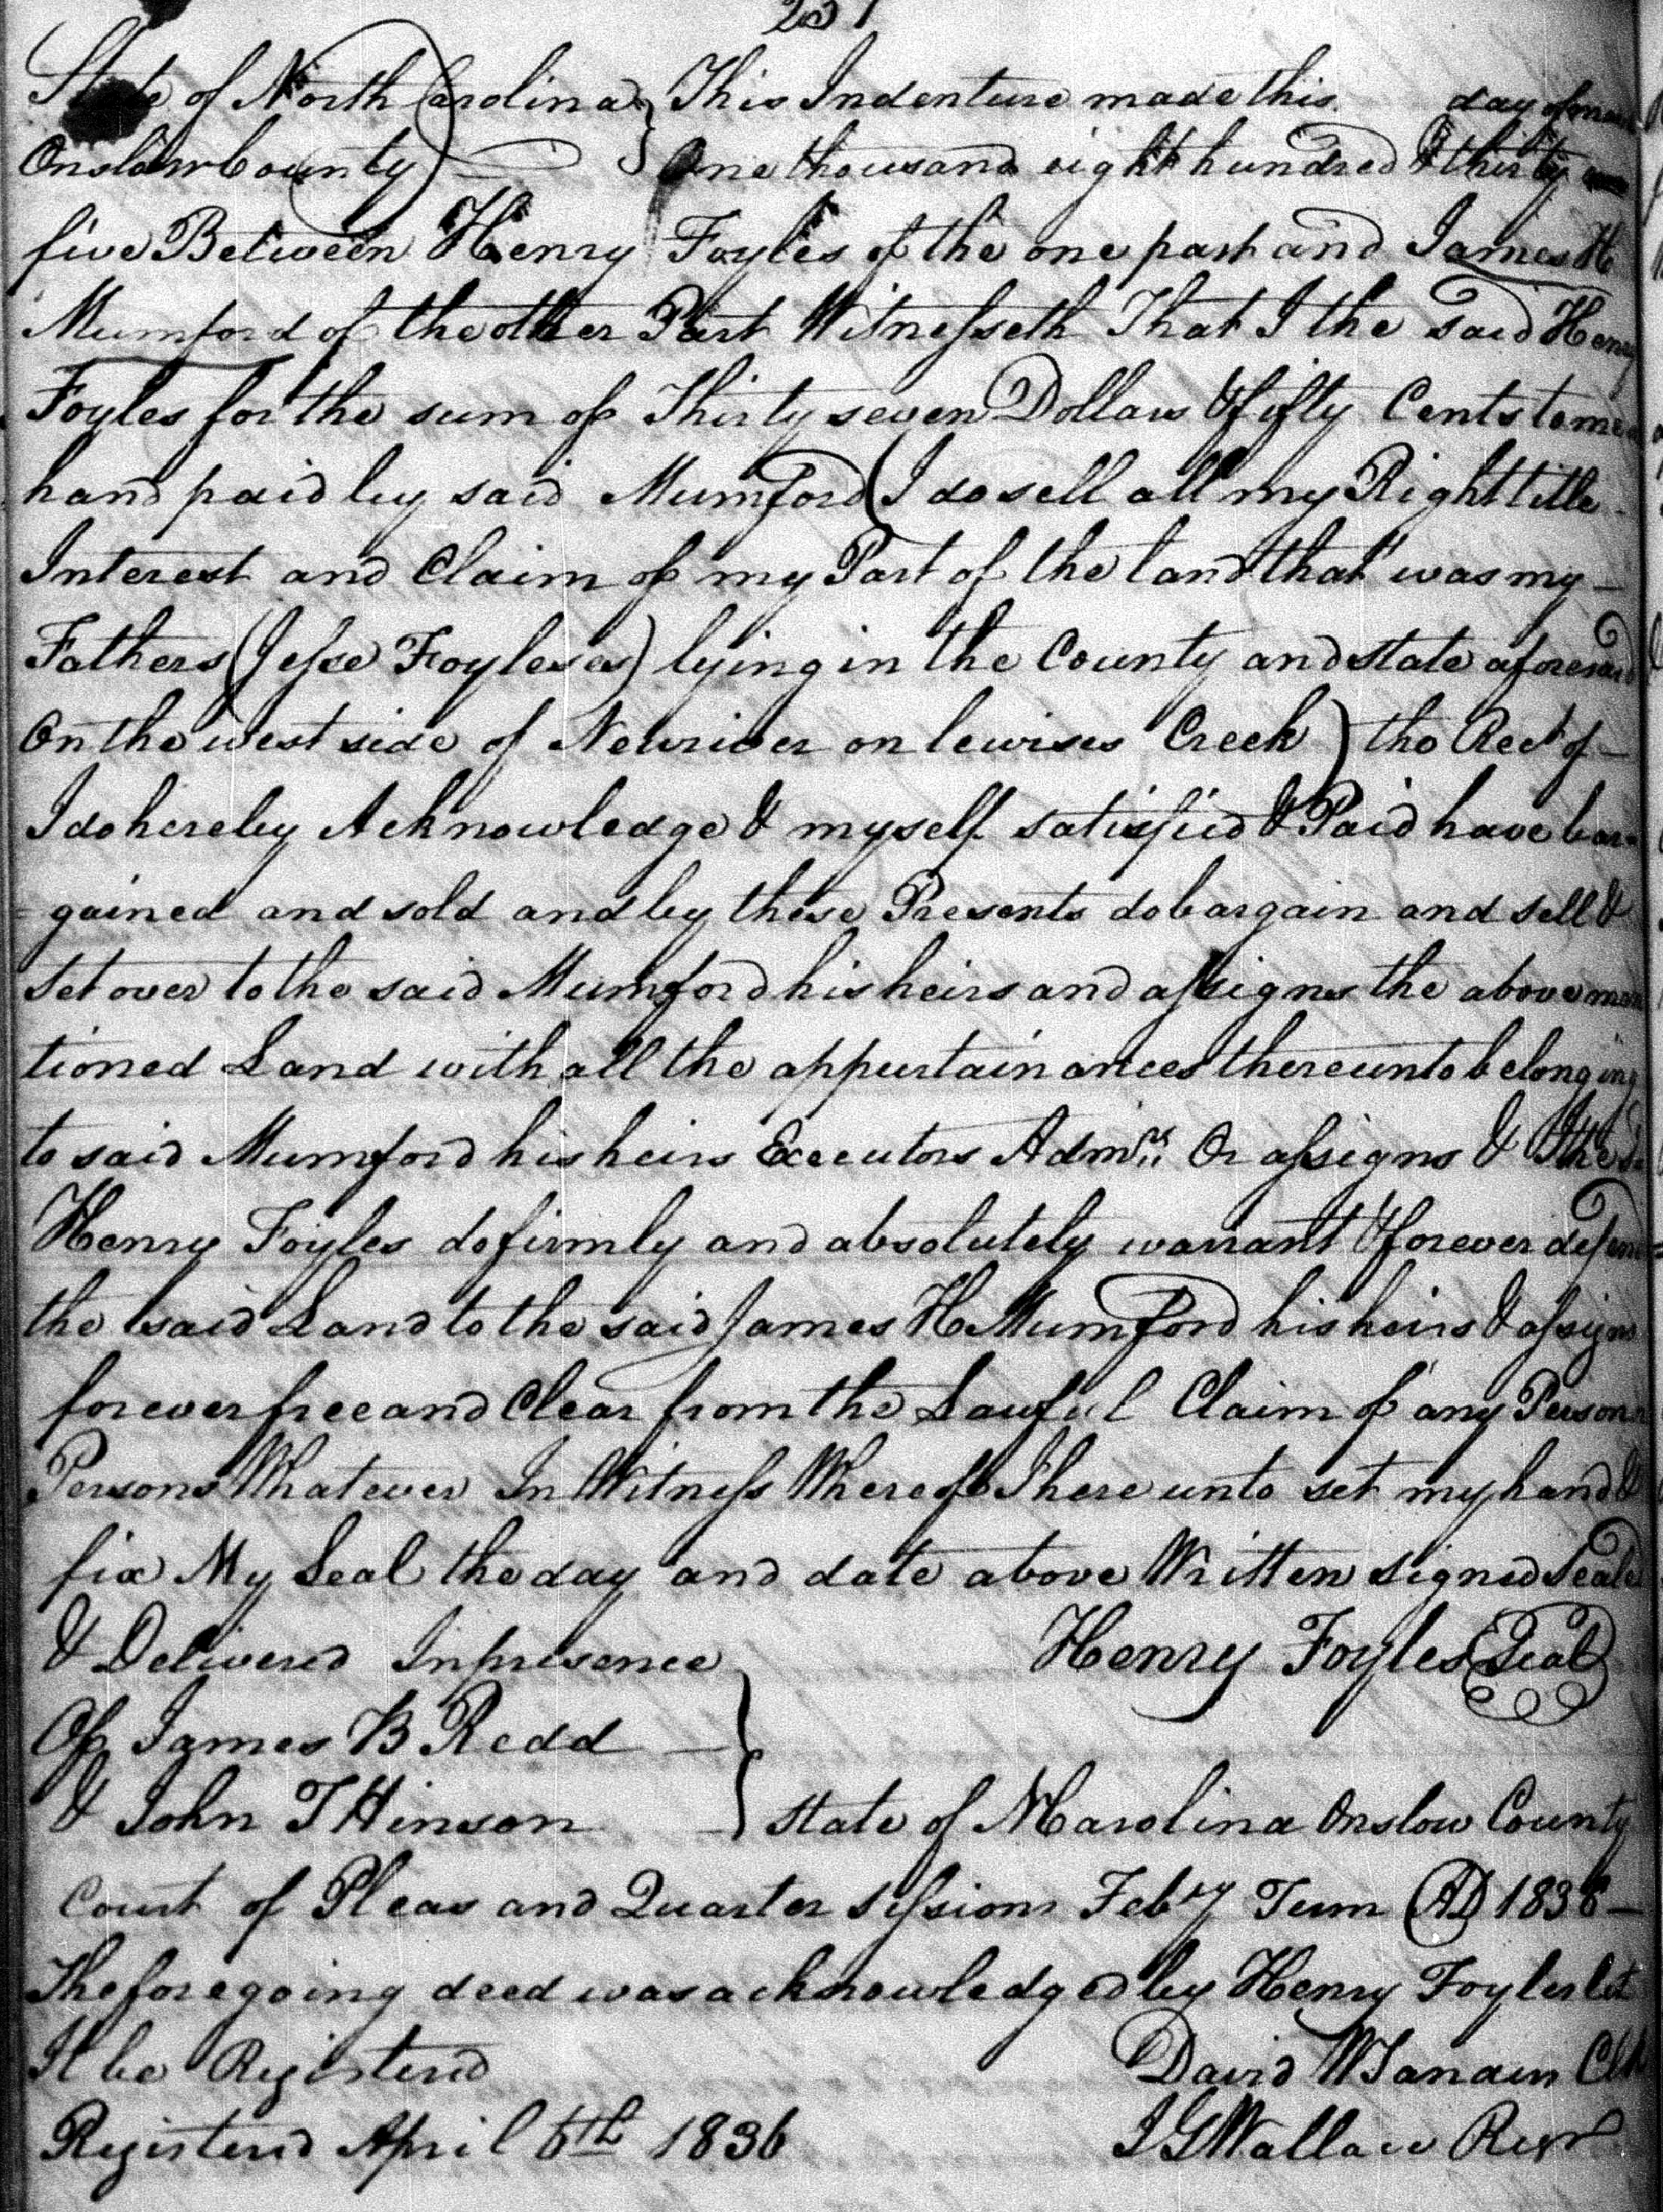 237
State of North Carolina } This Indenture made this day of
Onslow County } One thousand eight hundred & thirty
five Between Henry Foyles of the one part and James H
Mumford of the other Part Witnesseth That I the said Henry
Foyles for the sum of Thirty seven Dollars & fifty Cents to me
hand paid by said Mumford ( I do sell all my Right title
Interest and Claim of my Part of the land that was my
Fathers (Jesse Foyleses) lying in the County and state aforesaid
On the west side of Newriver on lewises Creek ) the Rect of
I do hereby Acknowledge & myself satisfied & Paid have bar-
=gained and sold and by these Presents do bargain and sell &
set over to the said Mumford his heirs and assigns the above men
tioned Land with all the appurtainances thereunto belonging
to said Mumford his heirs Executors Admrs Or assigns & I the sd
Henry Foyles do firmly and absolutely warrant & forever defend
the said Land to the said James H Mumford his heirs & assigns
forever free and Clear from the Lawful Claim of any Person
Persons Whatever In Witness Whereof I here unto set my hand &
fix My Seal the day and date above Written signed Seald
& Delivered In presence Henry Foyles (Seal)
Of James B Redd }
& John T Hinson } state of N Carolina Onslow County
Court of Pleas and Quarter sessions Feby Term AD 1836
The foregoing deed was acknowledged by Henry Foyles let
It be Registerd David W Clk
Registerd April 6th 1836 J G Wallace Regr